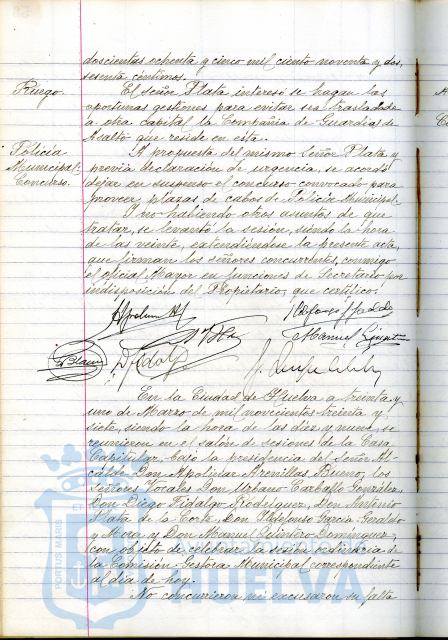 doscientas ochenta y cinco mil ciento noventa y dos,
sesenta céntimos.
Ruego. El señor Plata interesó se hagan las
oportunas gestiones para evitar sea trasladada
a otra capital la Compañía de Guardias de
Asalto que reside en esta.
Policía Municipal: Concurso. A propuesta del mismo Señor Plata y
previa declaración de urgencia, se acordó
dejar en suspenso el concurso convocado para
proveer plazas de cabos de Policía Municipal.
Y no habiendo otros asuntos de que
tratar, se levantó la sesión, siendo la hora
de las veinte, extendiéndose la presente acta,
que firman los señores concurrentes, conmigo
el oficial Mayor en funciones de Secretario por
indisposición del Propietario, que certifico.
En la Ciudad de Huelva a treinta y
uno de Marzo de mil novecientos treinta y
siete, siendo la hora de las diez y nueve, se
reunieron en el salón de sesiones de la Casa
Capitular, bajo la presidencia del Señor Al-
calde Don Apolinar Arenillas Bueno, los
Señores Vocales Don Urbano Carballo González,
Don Diego Fidalgo Rodríguez, Don Antonio
Plata de la Corte, Don Ildefonso García Geraldo
y Mora y Don Manuel Quintero Domínguez,
con objeto de celebrar la sesión ordinaria de
la Comisión Gestora Municipal correspondiente
al día de hoy.
No concurrieron ni excusaron su falta
PORTUS MARIS
HUELVA